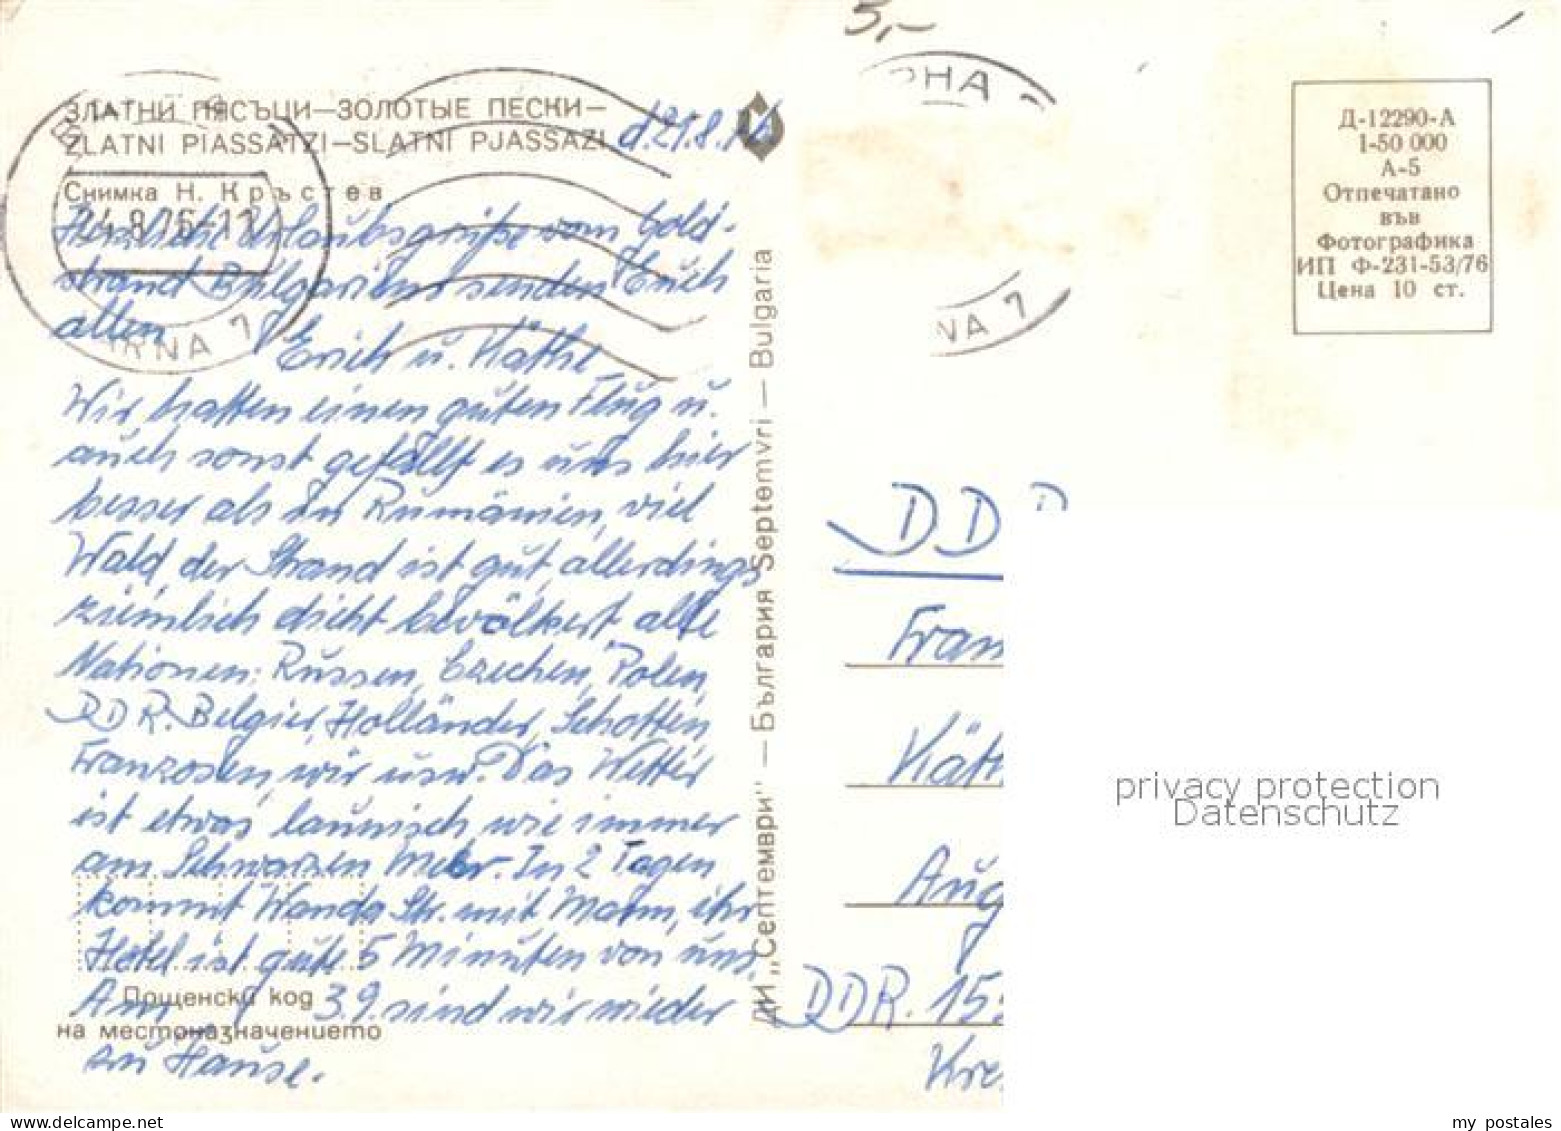 5,-
ЗЛАТНИ ПЯСЪЦИ—ЗОЛОТЫЕ ПЕСКИ—
ZLATNI PIASSATZI—SLATNI PJASSAZI
d. 21.8.76
Снимка Н. Кръстев
24.8.76-11
VARNA 7
Herzliche Urlaubsgrüße vom Gold-
strand Bulgariens senden Euch
allen
Erich u. Käthe
Wir hatten einen guten Flug u.
auch sonst gefällt es uns hier
besser als in Rumänien, viel
Wald, der Strand ist gut, allerdings
ziemlich dicht bevölkert, alle
Nationen: Russen, Czechen, Polen,
DDR. Belgier, Holländer, Schotten,
Franzosen, wir usw. Das Wetter
ist etwas launisch, wie immer
am Schwarzen Meer. In 2 Tagen
kommt Wanda Str. mit Mann, ihr
Hotel ist gute 5 Minuten von uns.
Am 3.9. sind wir wieder
zu Hause.
Пощенски код
на местоназначението
ДИ „Септември" — България Septemvri — Bulgaria
РНА
NA 7
Д-12290-А
1-50 000
А-5
Отпечатано
във
Фотографика
ИП Ф-231-53/76
Цена 10 ст.
DDR
Fram
Kätt
Aug
DDR. 15
Kre
privacy protection
Datenschutz
my postales